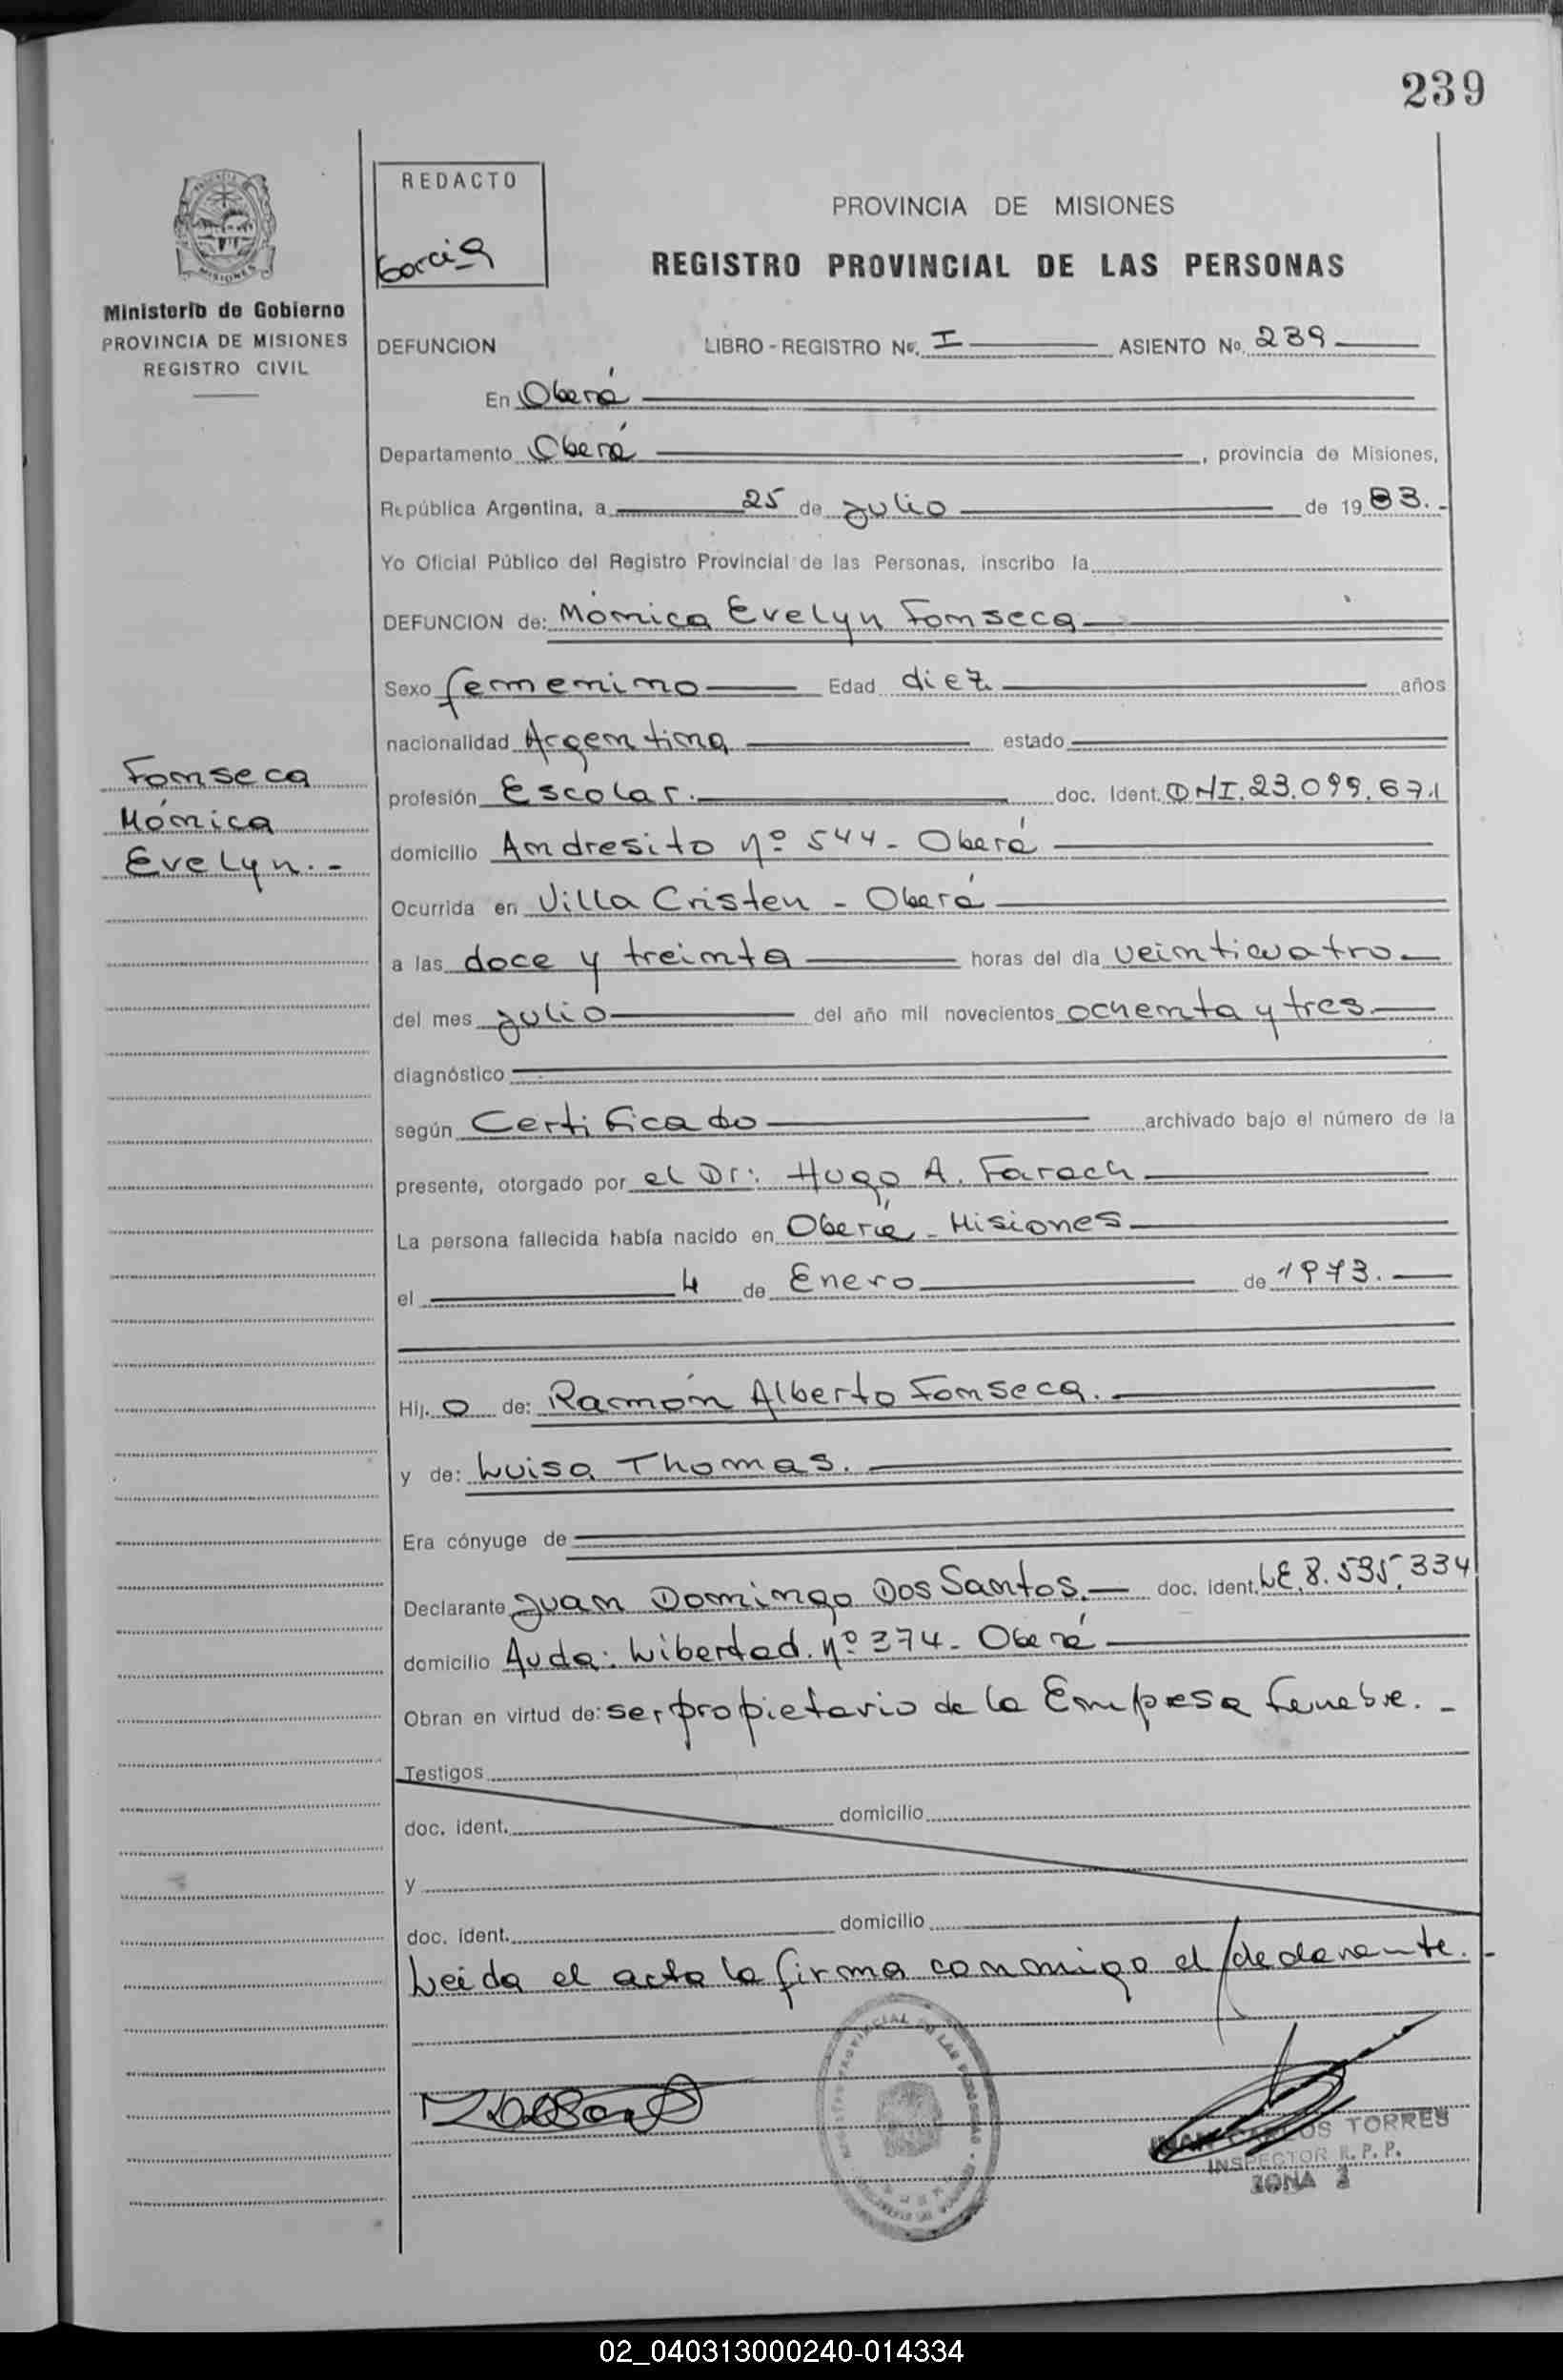 239
REDACTO
Garcia
PROVINCIA DE MISIONES
REGISTRO PROVINCIAL DE LAS PERSONAS
MISIONES
Ministerio de Gobierno
PROVINCIA DE MISIONES
REGISTRO CIVIL
DEFUNCION LIBRO - REGISTRO Nº. I ASIENTO Nº. 239
En Oberá
Departamento Oberá, provincia de Misiones,
República Argentina, a 25 de julio de 1983.-
Yo Oficial Público del Registro Provincial de las Personas, inscribo la
DEFUNCION de: Mónica Evelyn Fonseca
Sexo femenino Edad diez años
nacionalidad Argentina estado
Fonseca
Mónica
Evelyn.-
profesión Escolar. doc. Ident. DNI. 23.099.671
domicilio Andresito nº 544 - Oberá
Ocurrida en Villa Cristen - Oberá
a las doce y treinta horas del dia veinticuatro
del mes julio del año mil novecientos ochenta y tres
diagnóstico
según Certificado archivado bajo el número de la
presente, otorgado por el Dr: Hugo A. Farach
La persona fallecida había nacido en Oberá - Misiones
el 4 de Enero de 1973.
Hij. o de: Ramón Alberto Fonseca.
y de: Luisa Thomas.
Era cónyuge de
Declarante Juan Domingo Dos Santos. doc. ident. LE. 8.535.334
domicilio Avda: Libertad. nº 374 - Oberá
Obran en virtud de: ser propietario de la Empresa Fenebre. -
Testigos
doc. ident. domicilio
y
doc. ident. domicilio
Leida el acta la firma conmigo el declarante. -
JUAN CARLOS TORRES
INSPECTOR R. P. P.
ZONA 3
02_040313000240-014334